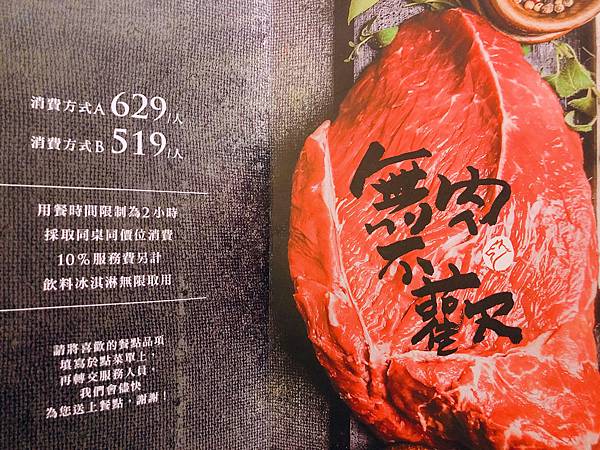 消費方式A 629/人
消費方式B 519/人
用餐時間限制為2小時
採取同桌同價位消費
10%服務費另計
飲料冰淇淋無限取用
請將喜歡的餐點品項
填寫於點菜單上，
再轉交服務人員，
我們會儘快
為您送上餐點，謝謝！
無肉
不歡